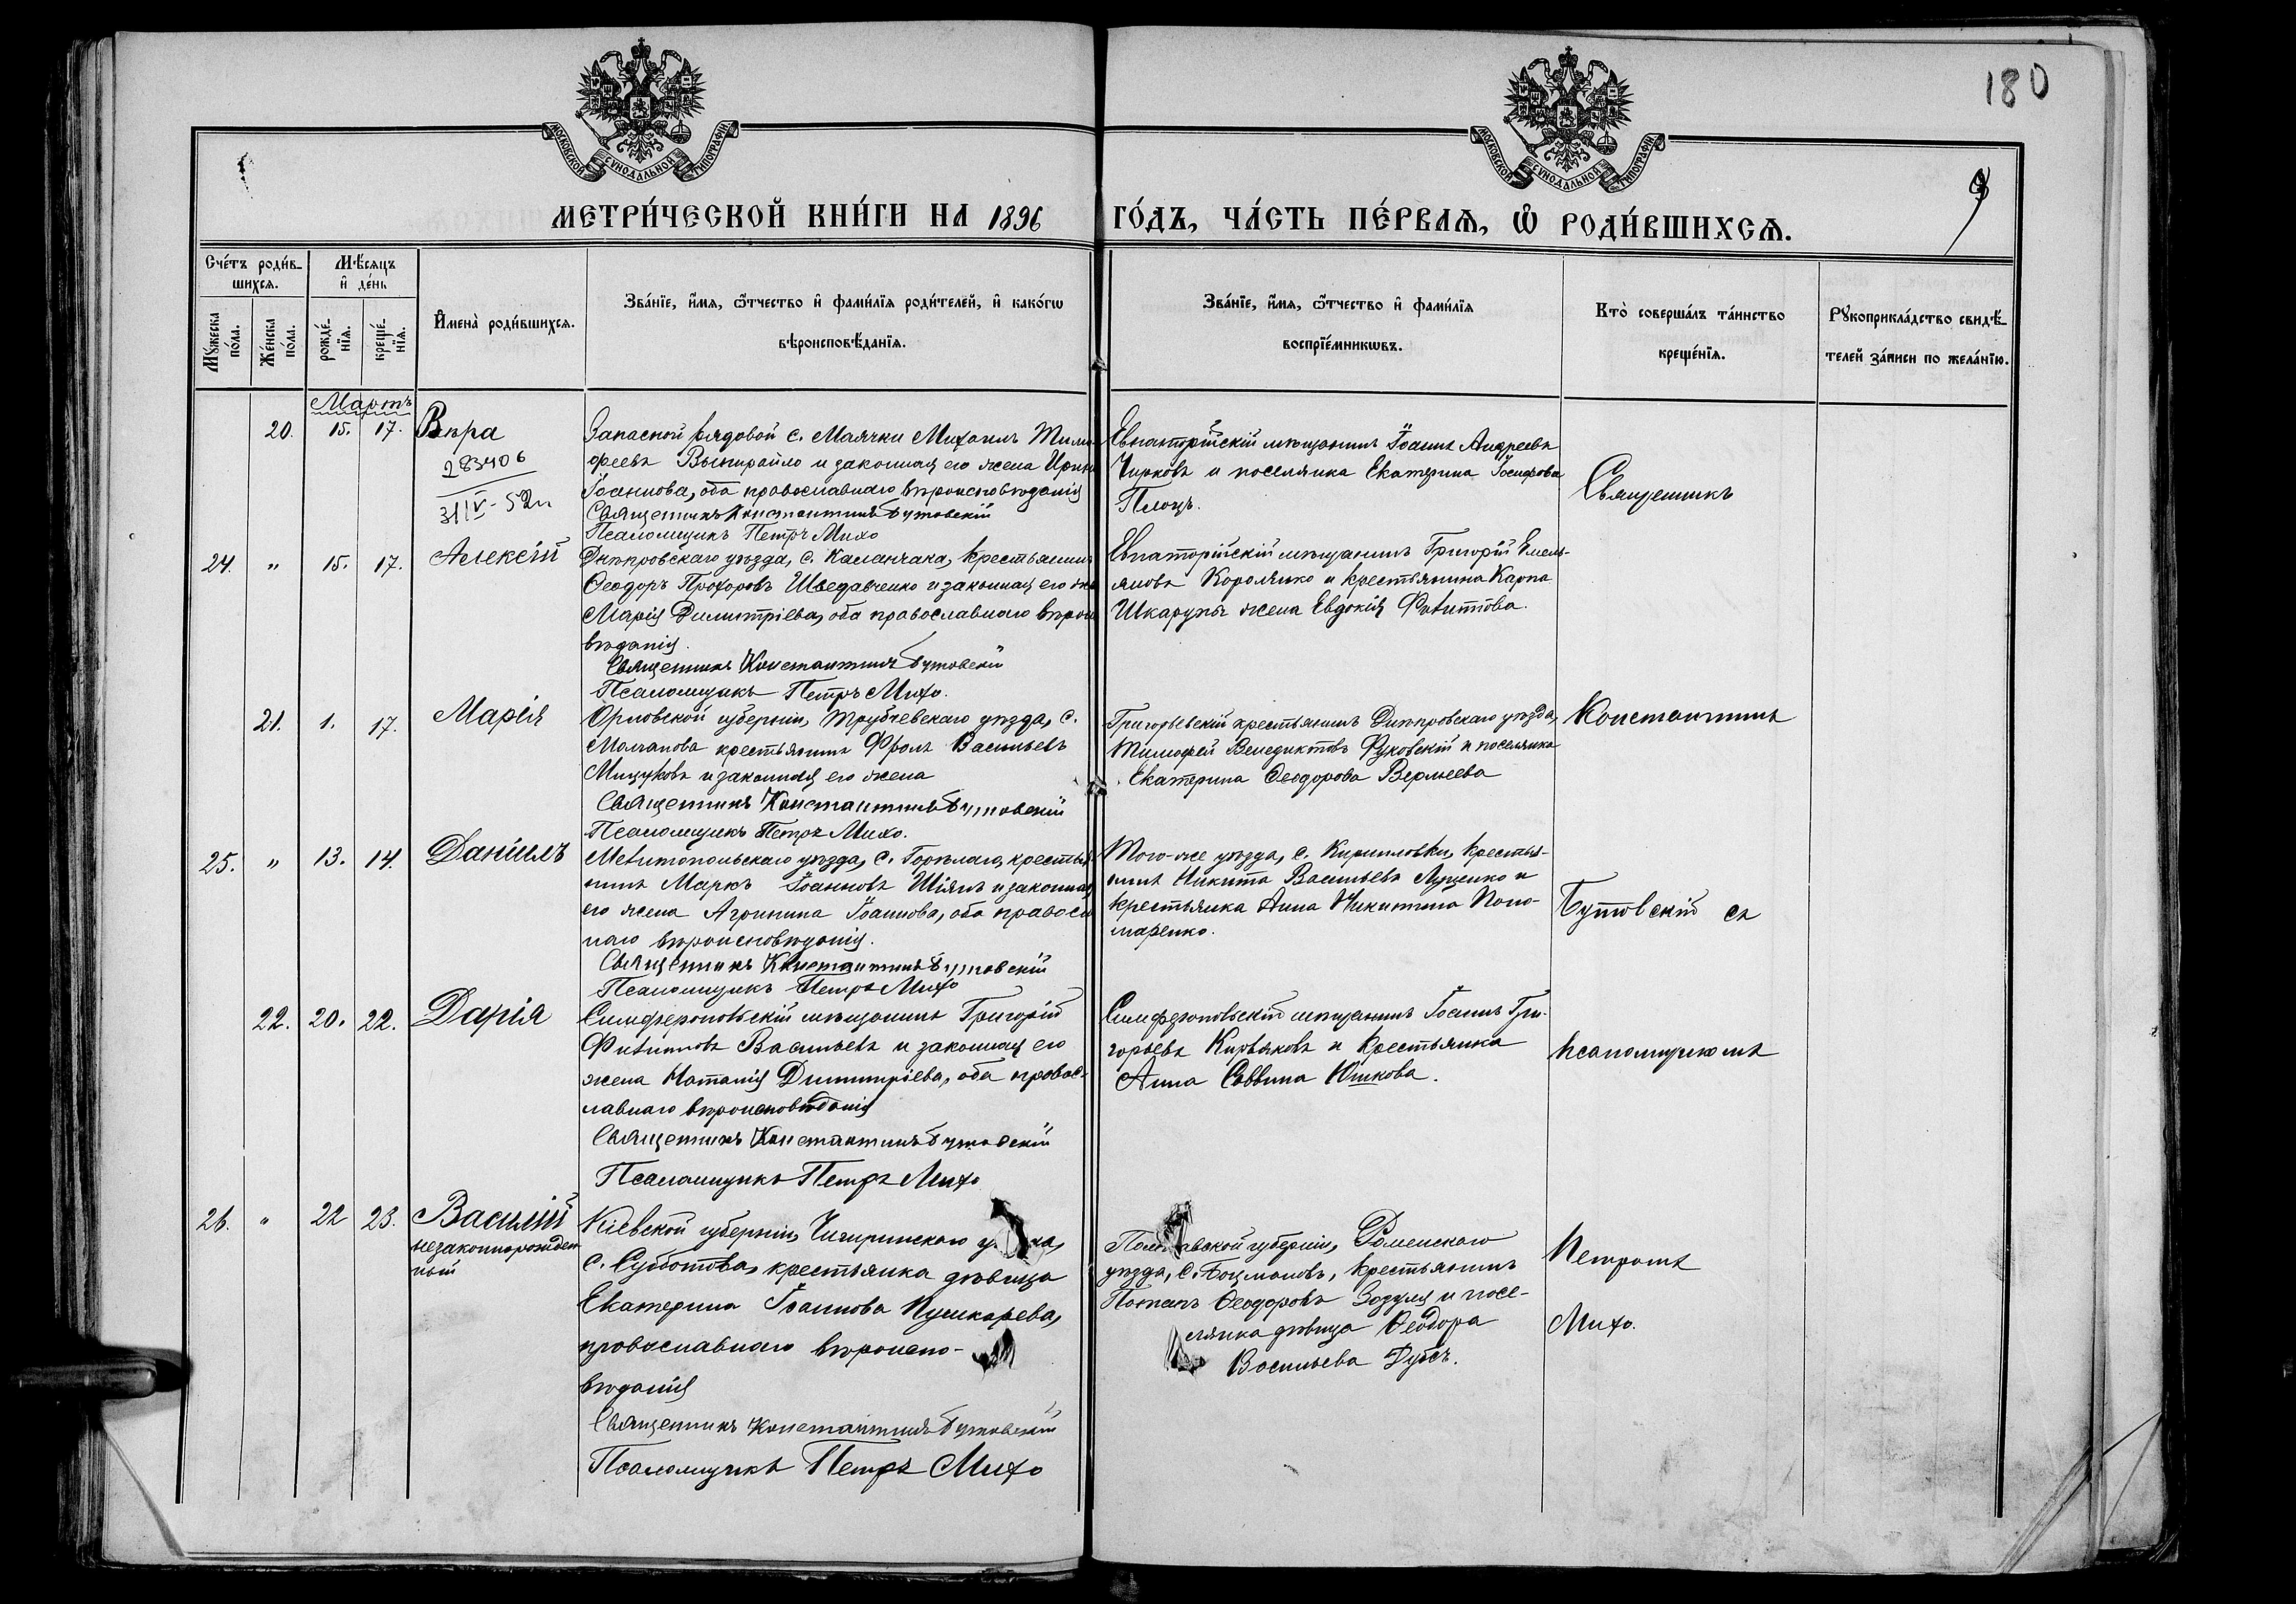 180
9
МОСКОВСКОЙ СѴНОДАЛЬНОЙ ТИПОГРАФІИ
МОСКОВСКОЙ СѴНОДАЛЬНОЙ ТИПОГРАФІИ
МЕТРИ́ЧЕСКОЙ КНИ́ГИ НА 1896 ГО́ДЪ, ЧА́СТЬ ПЕ́РВАѦ, Ѡ҆ РОДИ́ВШИХСѦ.
Сче́тъ роди́в-
шихсѧ.
Мѣ́сѧцъ
и҆ де́нь
Мꙋ́жеска
по́ла.
Же́нска
по́ла.
рожде́-
нїѧ.
креще́-
нїѧ.
И҆мена̀ роди́вшихсѧ.
Зва́нїе, и҆́мѧ, ѻ҆́тчество и҆ фами́лїѧ роди́телей, и҆ како́гѡ
вѣроисповѣ́данїѧ.
Зва́нїе, и҆́мѧ, ѻ҆́тчество и҆ фами́лїѧ
воспрїе́мникѡвъ.
Кто̀ соверша́лъ та́инство
креще́нїѧ.
Рꙋкоприкла́дство свидѣ́-
телей за́писи по жела́нїю.
Мартъ
20. 15. 17. Вѣра
283406
31/V-52г
Запасной рядовой с. Маячки Михаилъ Тимо-
феевъ Выпирайло и законная его жена Ирина
Іоаннова, оба православнаго вѣроисповѣданія
Священникъ Константинъ Бутовскій
Псаломщикъ Петръ Михо
Евпаторійскій мѣщанинъ Іоаннъ Андреевъ
Чирковъ и поселянка Екатерина Іосифова
Плоцъ.
24. " 15. 17. Алексій
Днѣпровскаго уѣзда, с. Каланчака, крестьянинъ
Ѳеодоръ Прохоровъ Шведавченко и законная его же
Марія Димитріева, оба православнаго вѣроис
вѣданія.
Священникъ Константинъ Бутовскій
Псаломщикъ Петръ Михо.
Евпаторійскій мѣщанинъ Григорій Емель-
яновъ Королько и крестьянина Карпа
Шкарупы жена Евдокія Филиппова.
21. 1. 17. Марія
Орловской губерніи, Трубчевскаго уѣзда, с.
Молчанова крестьянинъ Фролъ Васильевъ
Мишуковъ и законная его жена
Священникъ Константинъ Бутовскій
Псаломщикъ Петръ Михо.
Григорьевскій крестьянинъ Днѣпровскаго уѣзда,
Тимофей Венедиктовъ Руковскій и поселянка
Екатерина Ѳеодорова Вермеева
25. " 13. 14. Даніилъ
Мелитопольскаго уѣзда, с. Горѣлаго, крестья-
нинъ Маркъ Іоанновъ Шіянъ и законная
его жена Агрипина Іоаннова, оба правосл
наго вѣроисповѣданія.
Священникъ Константинъ Бутовскій
Псаломщикъ Петръ Михо
Того-же уѣзда, с. Кирилловки, крестья-
нинъ Никита Васильевъ Луценко и
крестьянка Анна Никитина Поно-
маренко.
22. 20. 22. Дарія
Симферопольскій мѣщанинъ Григорій
Филиповъ Васильевъ и законная его
жена Наталія Димитріева, оба правос-
лавнаго вѣроисповѣданія
Священникъ Константинъ Бутовскій
Псаломщикъ Петръ Михо
Симферопольскій мѣщанинъ Іоаннъ Гри-
горьевъ Кирьяковъ и крестьянка
Анна Саввина Юшкова.
26. " 22 23. Василій
незаконнорожден
ный
Кіевской губерніи, Чигиринскаго у зда,
с. Субботова, крестьянка дѣвица
Екатерина Іоаннова Пушкарева,
православнаго вѣроиспо-
вѣданія
Священникъ Константинъ Бутовскій
Псаломщикъ Петръ Михо
Полтавской губерніи, Роменскаго
уѣзда, с. Боцмановъ, крестьянинъ
Потапъ Ѳеодоровъ Зозуля и посе-
лянка дѣвица Ѳеодора
Васильева Дубсъ.
Священникъ
Константинъ
Бутовскій съ
псаломщикомъ
Петромъ
Михо.